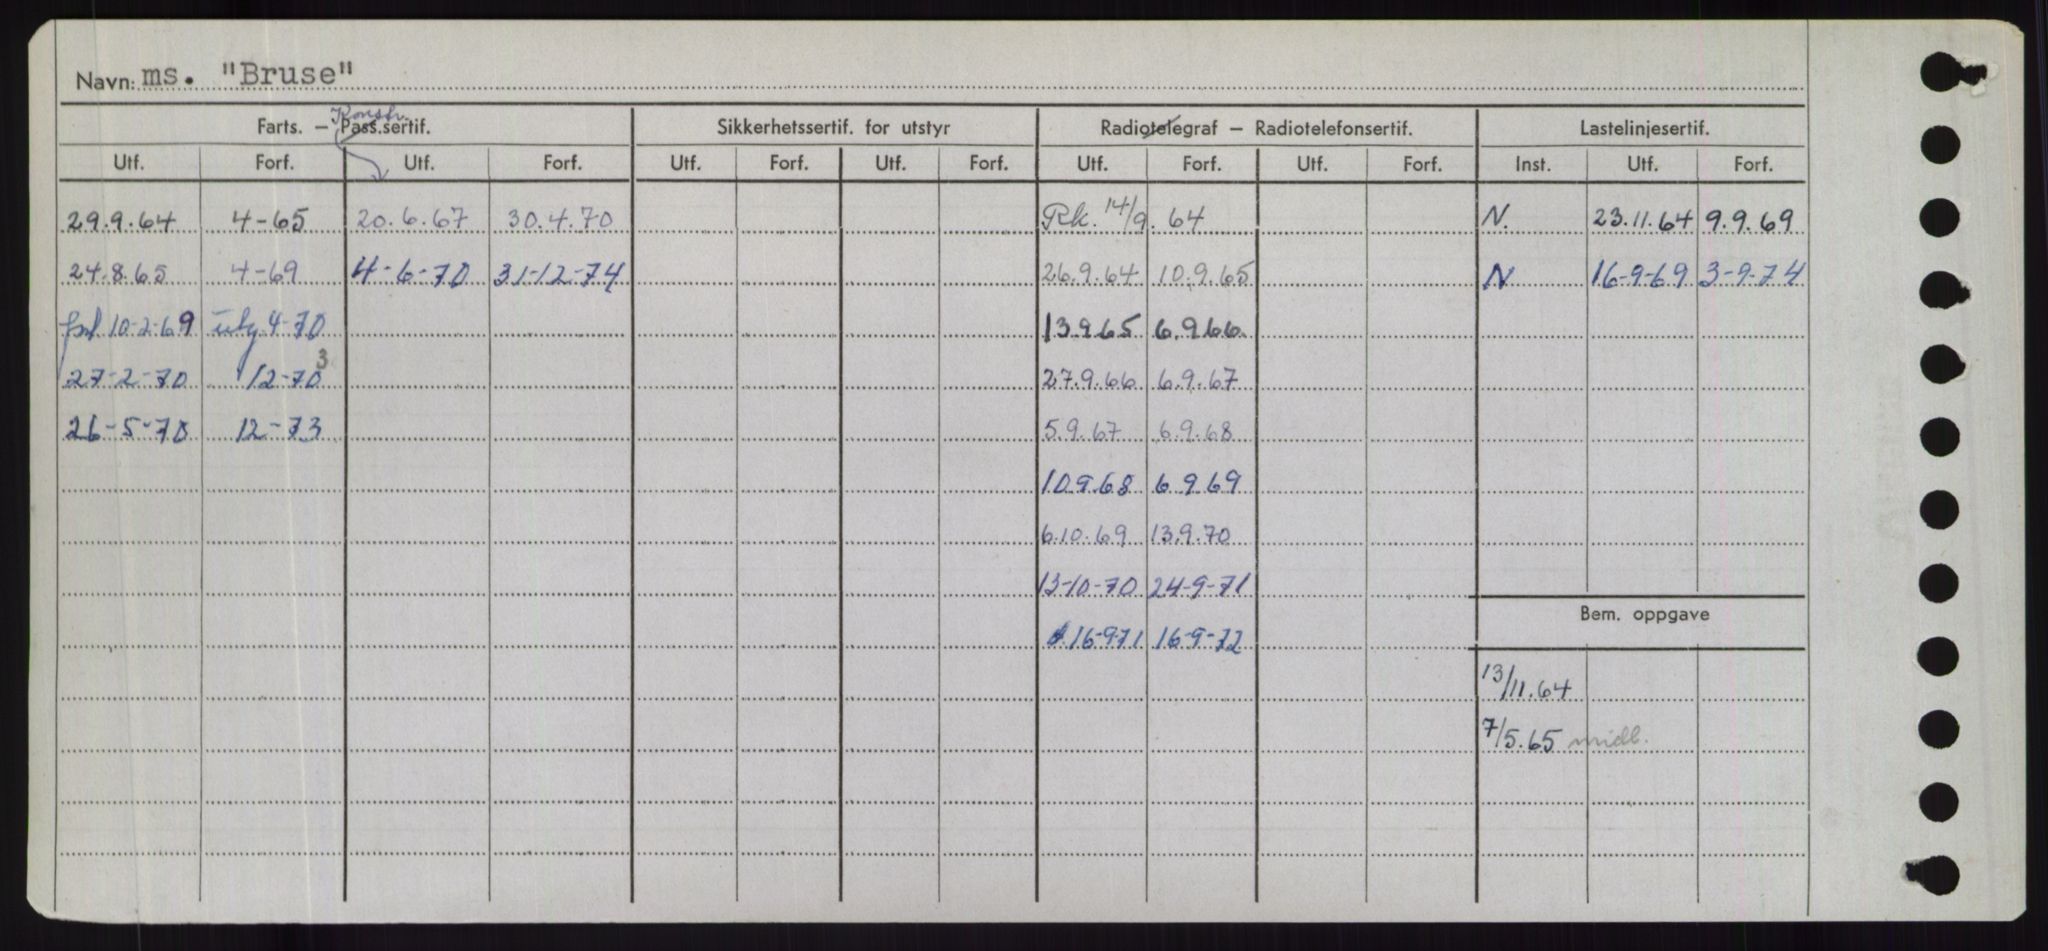 Navn: ms. "Bruse"
Konstr.
Farts. — Pass.sertif. Sikkerhetssertif. for utstyr Radiotelegraf — Radiotelefonsertif. Lastelinjesertif.
Utf. Forf. Utf. Forf. Utf. Forf. Utf. Forf. Utf. Forf. Utf. Forf. Inst. Utf. Forf.
29.9.64 4-65 20.6.67 30.4.70 Rk. 14/9. 64 N. 23.11.64 9.9.69
24.8.65 4-69 4-6-70 31-12-74 26.9.64 10.9.65 N 16-9-69 3-9-74
10-2-69 4-70 13.9.65 6.9.66
27-2-70 12-70 3 27.9.66 6.9.67
26-5-70 12-73 5.9.67 6.9.68
10.9.68 6.9.69
6.10.69 13.9.70
13-10-70 24-9-71
Bem. oppgave
16-9-71 16-9-72
13/11.64
7/5.65 midl.